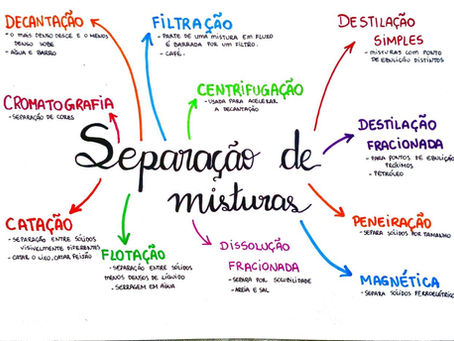 DECANTAÇÃO
- O MAIS DENSO DESCE E O MENOS
DENSO SOBE
- ÁGUA E BARRO
FILTRAÇÃO
- PARTE DE UMA MISTURA EM FLUXO
É BARRADA POR UM FILTRO.
- CAFÉ.
DESTILAÇÃO
SIMPLES
- MISTURAS COM PONTO
DE EBULIÇÃO DISTINTOS
CROMATOGRAFIA
- SEPARAÇÃO DE CORES
CENTRIFUGAÇÃO
- USADA PARA ACELERAR
A DECANTAÇÃO
DESTILAÇÃO
FRACIONADA
- PARA PONTOS DE EBULIÇÃO
PRÓXIMOS
- PETRÓLEO
Separação de
misturas
CATAÇÃO
- SEPARAÇÃO ENTRE SÓLIDOS
VISIVELMENTE DIFERENTES
- CATAR O LIXO, CATAR FEIJÃO
FLOTAÇÃO
- SEPARAÇÃO ENTRE SÓLIDOS
MENOS DENSOS DE LÍQUIDO
- SERRAGEM EM ÁGUA
DISSOLUÇÃO
FRACIONADA
- SEPARA POR SOLUBILIDADE
- AREIA E SAL
PENEIRAÇÃO
- SEPARA SÓLIDOS POR TAMANHO
MAGNÉTICA
- SEPARA SÓLIDOS FERROELÉTRICO